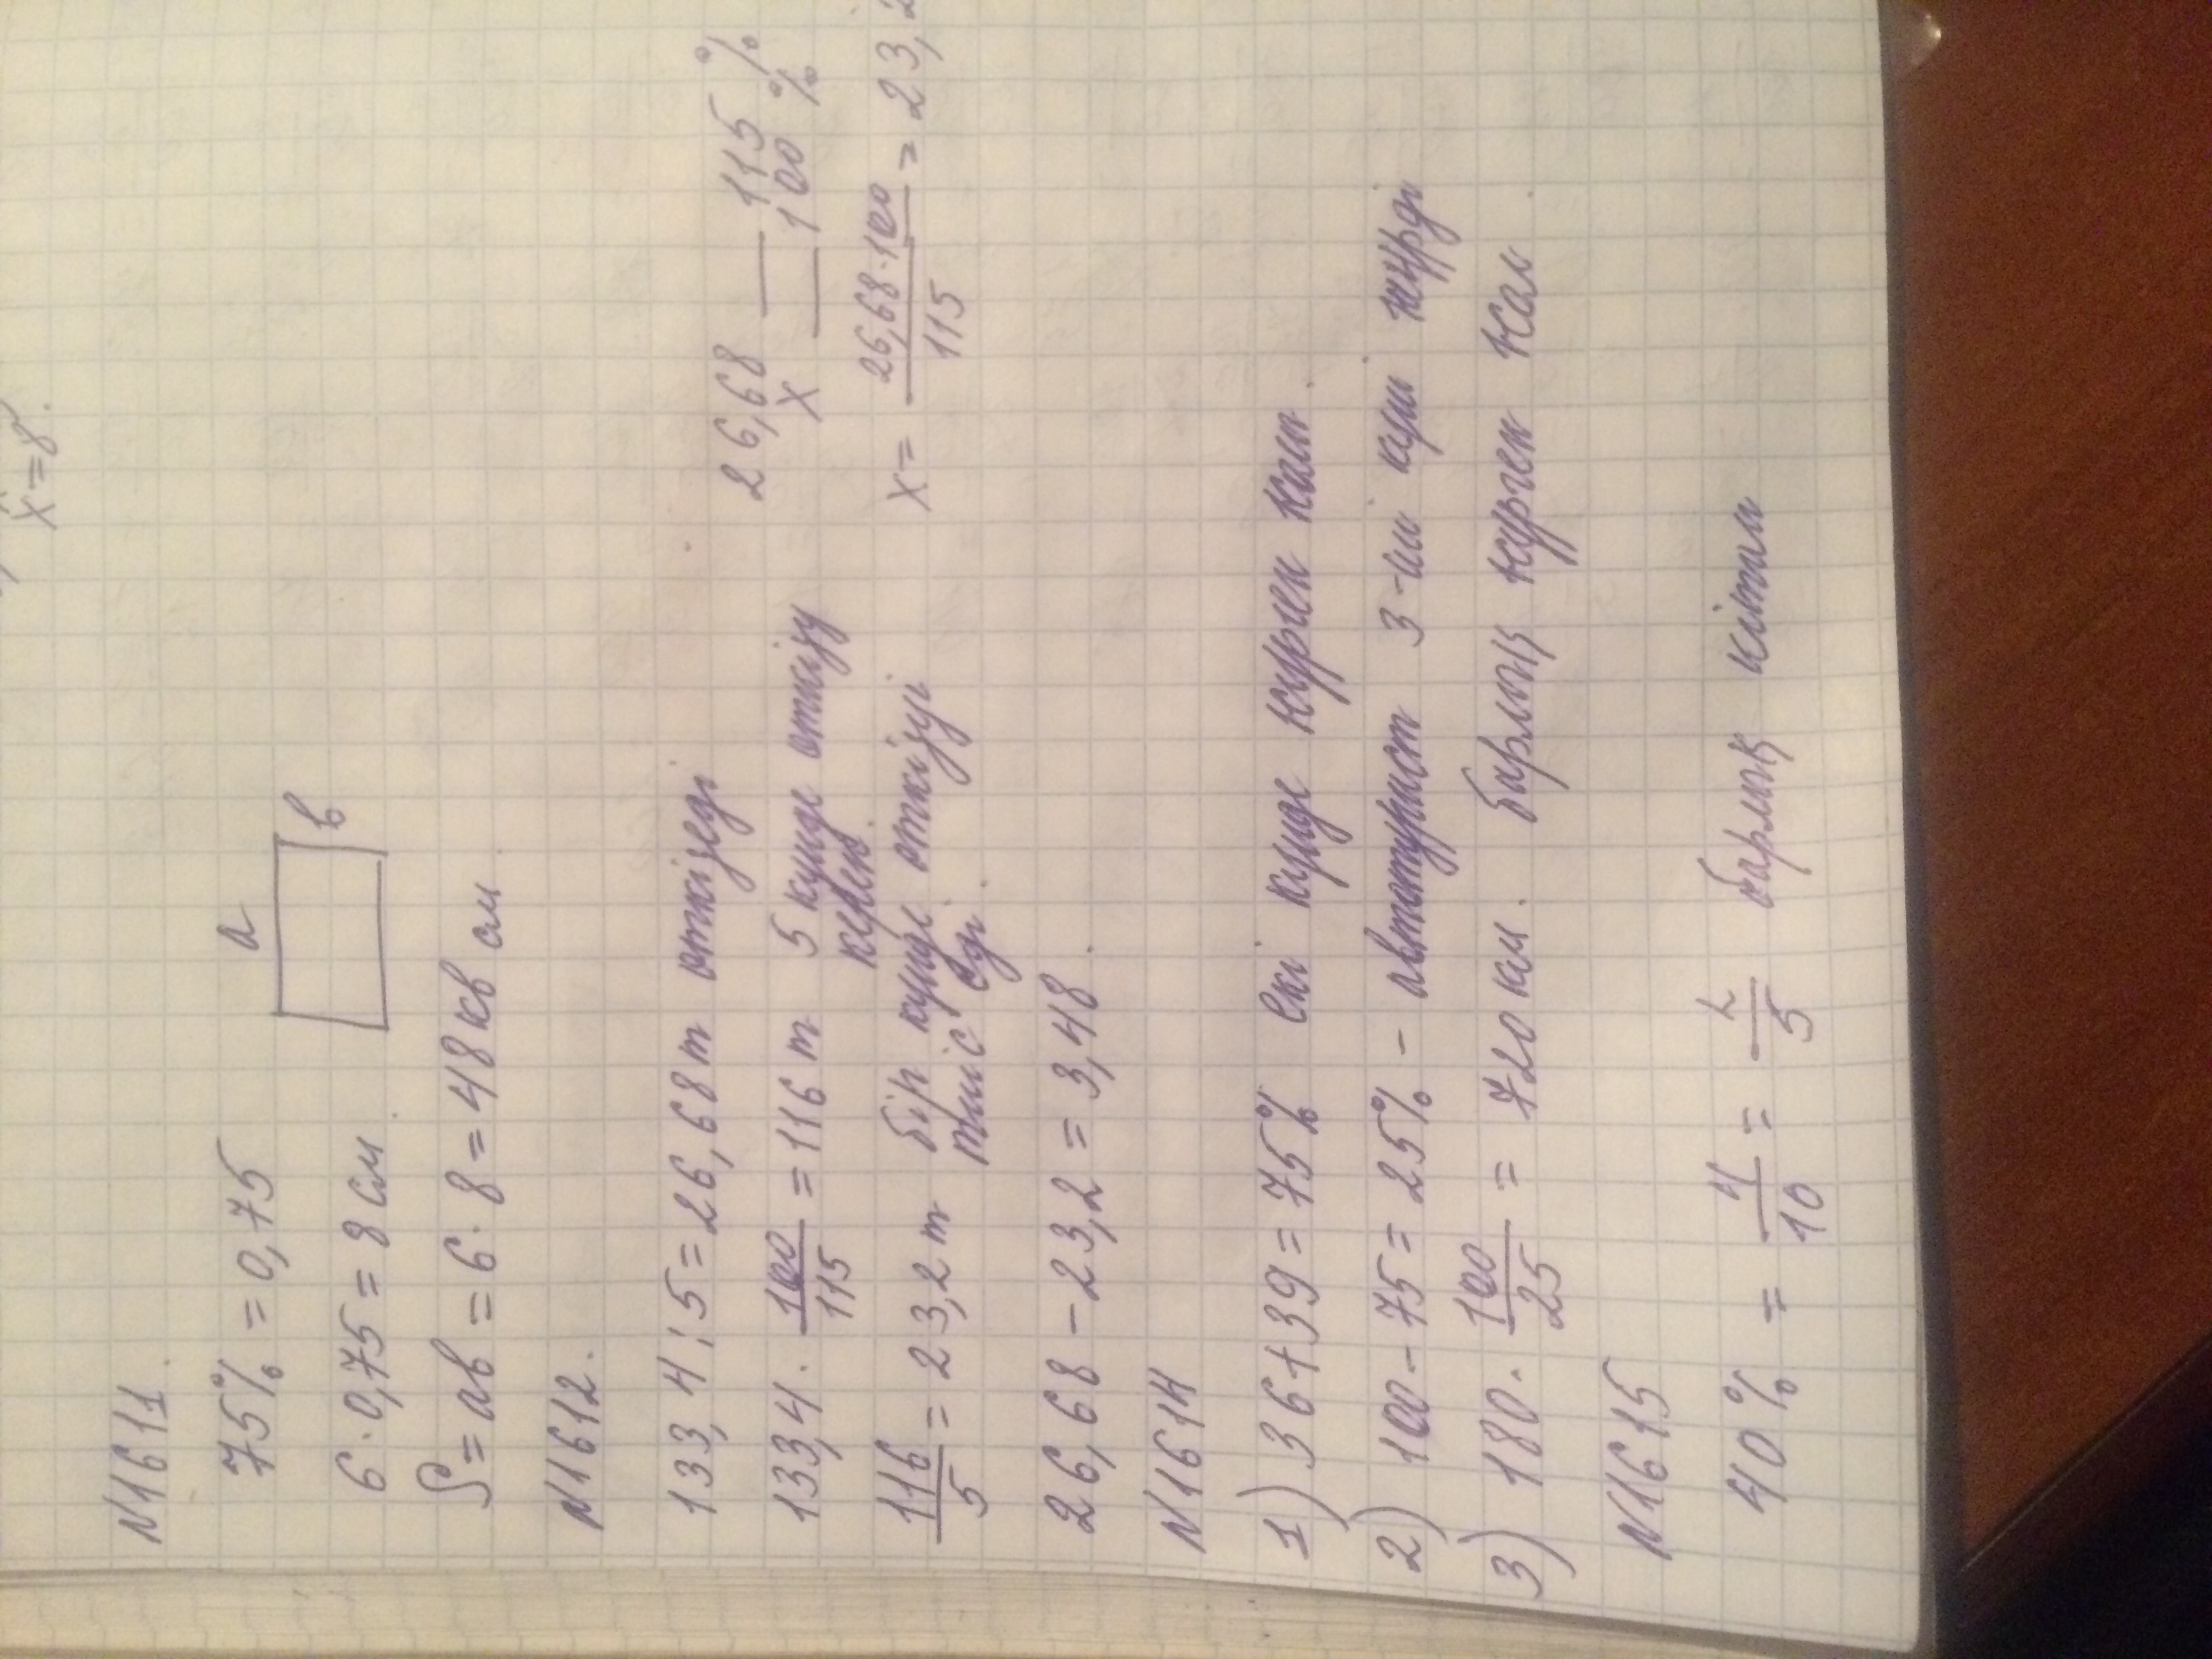 x = 8.
N1611.
a
75% = 0,75
в
6 · 0,75 = 8 см.
S = ав = 6 · 8 = 48 кв см
N1612.
133,4 : 5 = 26,68 т өткізеді
26,68 — 115 %
x — 100 %
133,4 · 100/115 = 116 т 5 күнде өткізу керек.
x = 26,68 · 100 / 115 = 23,2
116/5 = 23,2 т бір күнде өткізуі тиіс еді.
26,68 - 23,2 = 3,48.
N1614
1) 36 + 39 = 75% екі күнде жүрген жол.
2) 100 - 75 = 25% - автотурист 3-ші күні жүрді
3) 180 · 100/25 = 720 км. барлық жүрген жол.
N1615
40% = 4/10 = 2/5 барлық кітап